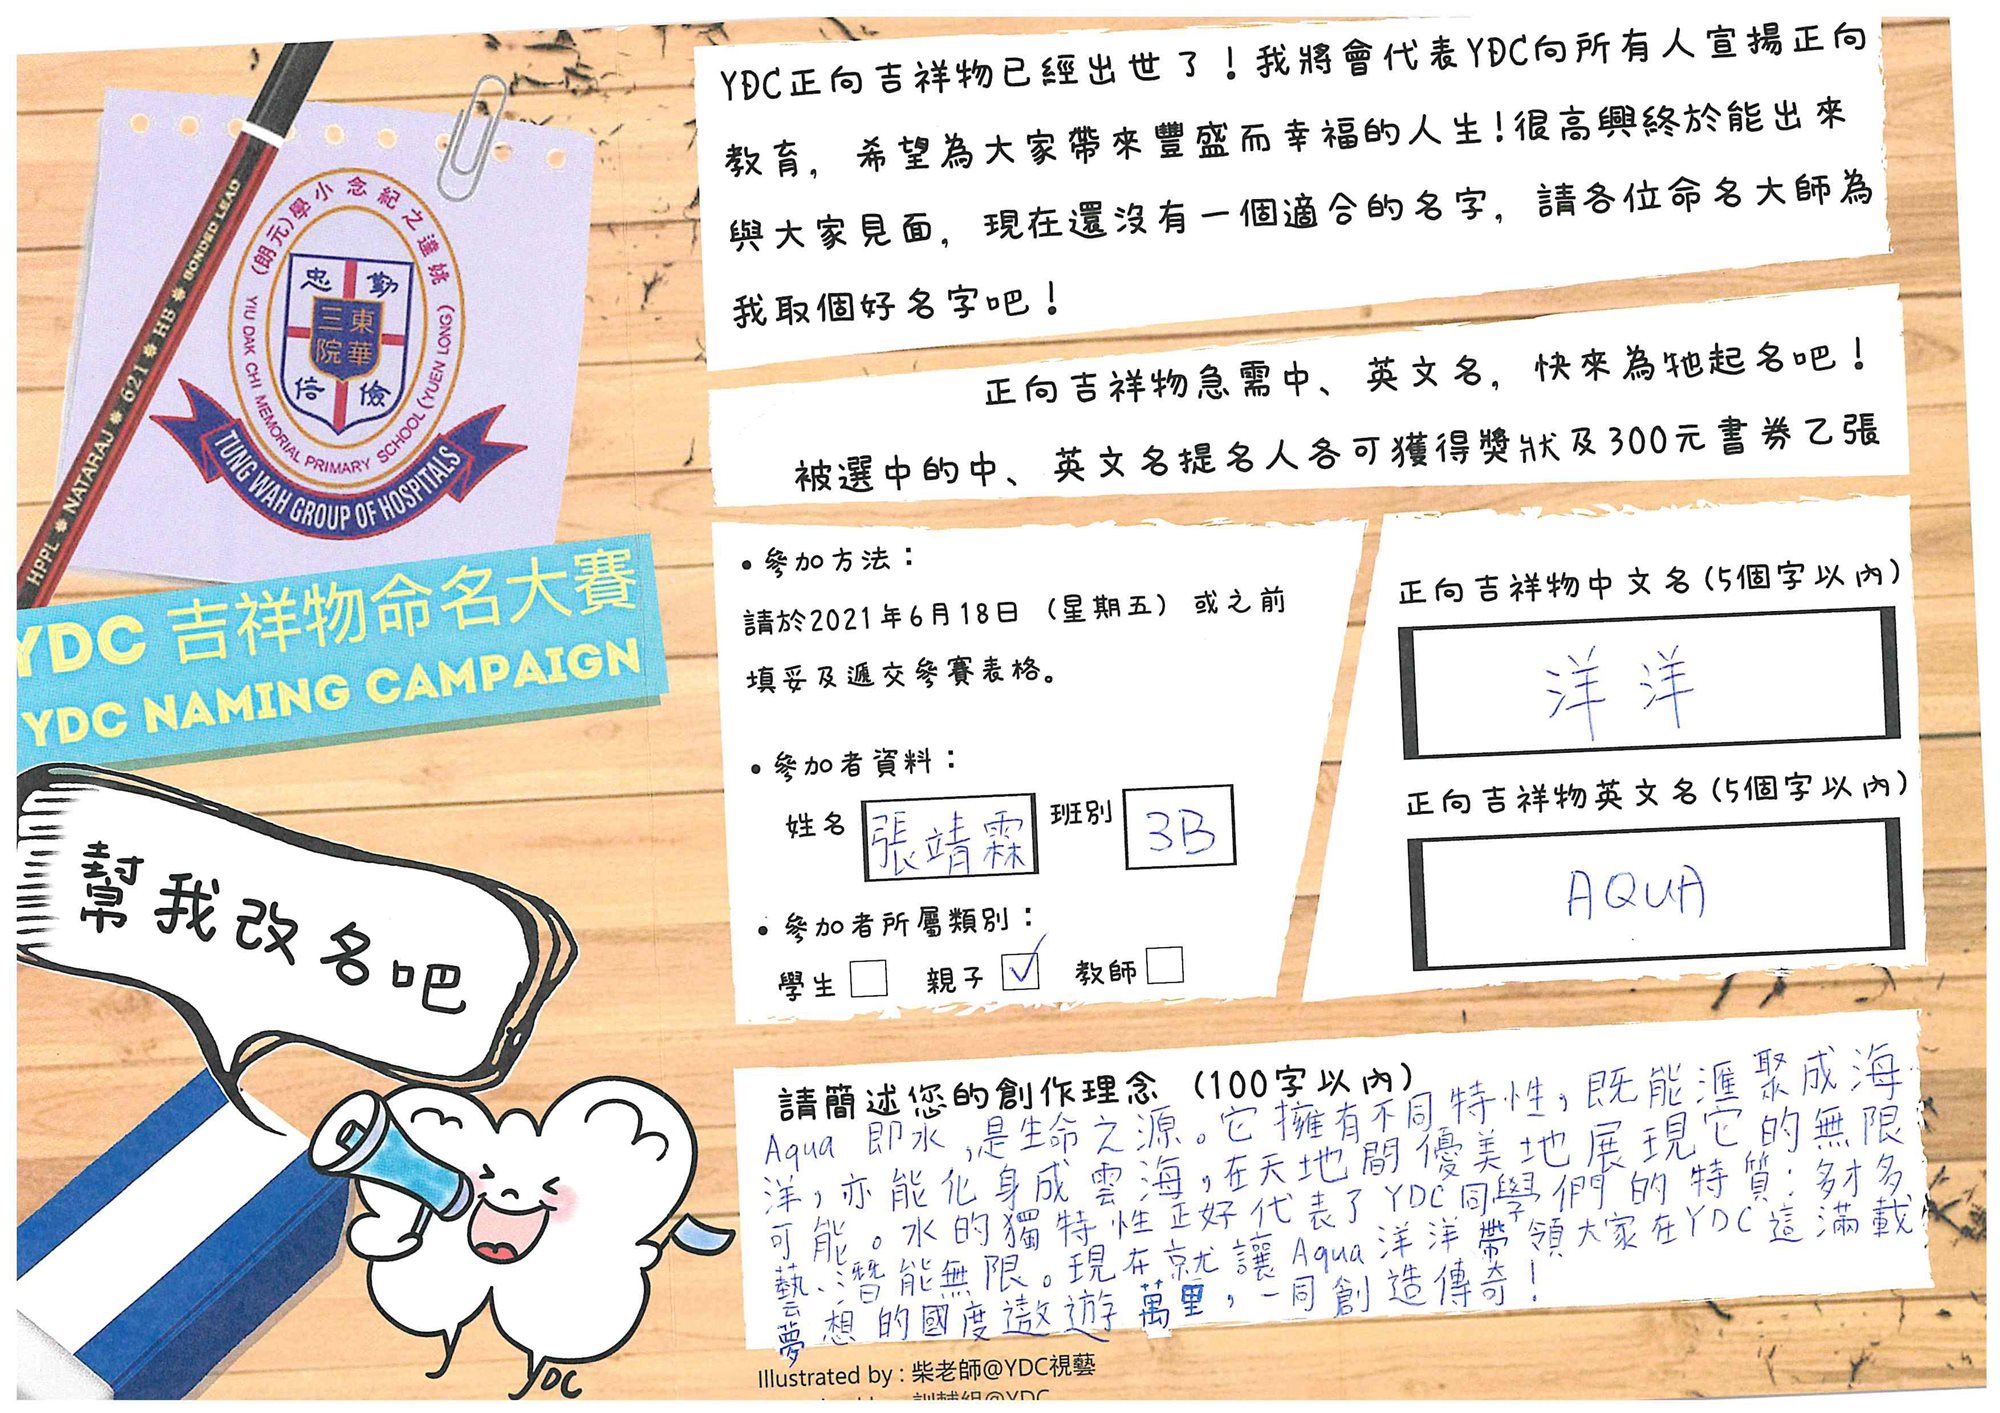 YDC正向吉祥物已經出世了！我將會代表YDC向所有人宣揚正向
教育，希望為大家帶來豐盛而幸福的人生！很高興終於能出來
與大家見面，現在還沒有一個適合的名字，請各位命名大師為
我取個好名字吧！
正向吉祥物急需中、英文名，快來為牠起名吧！
被選中的中、英文名提名人各可獲得獎狀及300元書券乙張
HPPL ✽ NATARAJ ✽ 621 ✽ HB ✽ BONDED LEAD
姚達之紀念小學(元朗)
YIU DAK CHI MEMORIAL PRIMARY SCHOOL (YUEN LONG)
忠 勤
東華
三院
信 儉
TUNG WAH GROUP OF HOSPITALS
YDC 吉祥物命名大賽
YDC NAMING CAMPAIGN
幫我改名吧
YDC
• 參加方法：
請於2021年6月18日（星期五）或之前
填妥及遞交參賽表格。
• 參加者資料：
姓名 張靖霖 班別 3B
• 參加者所屬類別：
學生 親子 ✓ 教師
正向吉祥物中文名(5個字以內)
洋洋
正向吉祥物英文名(5個字以內)
AQUA
請簡述您的創作理念（100字以內）
Aqua 即水，是生命之源。它擁有不同特性，既能滙聚成海
洋，亦能化身成雲海，在天地間優美地展現它的無限
可能。水的獨特性正好代表了YDC同學們的特質：多才多
藝、潛能無限。現在就讓Aqua洋洋帶領大家在YDC這滿載
夢想的國度遨遊萬里，一同創造傳奇！
Illustrated by : 柴老師@YDC視藝
訓輔組@YDC